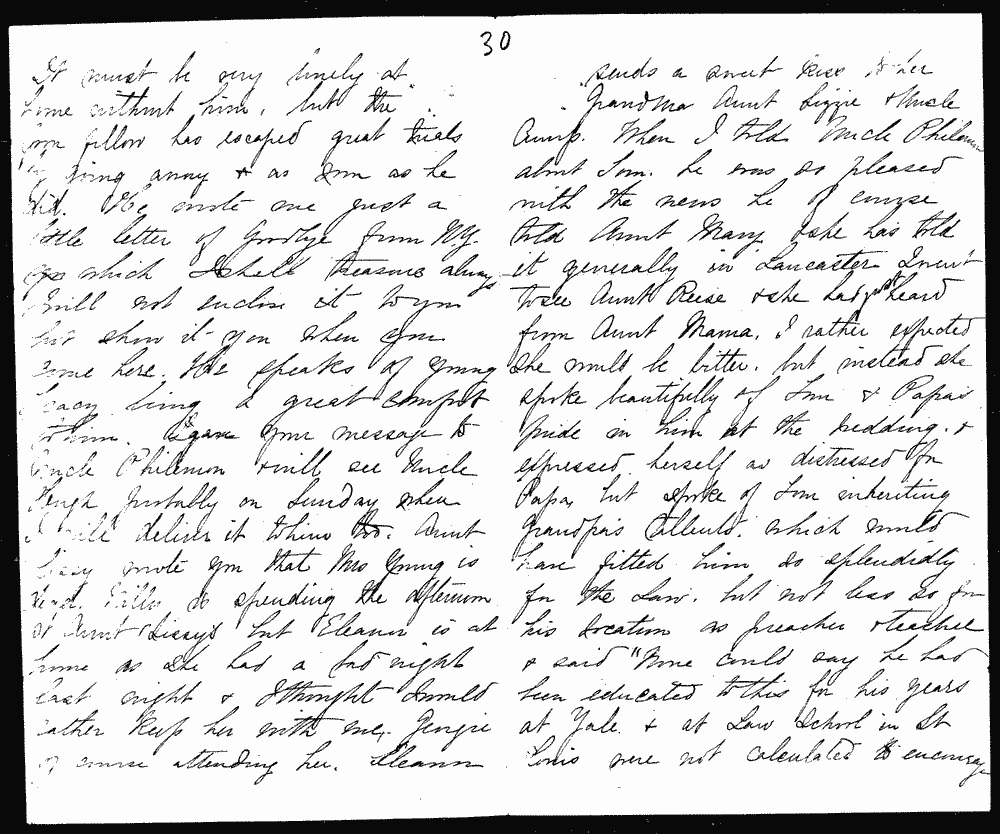 30
It must be very lonely at
home without him, but the
poor fellow has escaped great trials
by going away & as soon as he
did. He wrote me just a
little letter of Goodbye from N.Y.
which I shall treasure always
will not enclose it to you
but show it you when you
come here. He speaks of young
being a great comfort
to him. I gave your message to
Uncle Philemon & will see Uncle
Hugh probably on Sunday when
I will deliver it to him too. Aunt
Lizzy wrote you that Mrs Young is
dead. is spending the afternoon
at Aunt Lizzy's but Eleanor is at
home as she had a bad night
last night & I thought I would
rather keep her with me, Georgie
of course attending her. Eleanor
sends a sweet kiss to her
Grandma Aunt Lizzie & Uncle
When I told Uncle Philemon
about Tom. he was so pleased
with the news he of course
told Aunt Mary & she has told
it generally in Lancaster I went
to see Aunt Reese & she had just heard
from Aunt Mama. I rather expected
she would be bitter, but instead she
spoke beautifully of Tom & Papa's
pride in him at the wedding. &
expressed herself as distressed for
Papa, but spoke of Tom inheriting
Grandpa's Talents. which would
have fitted him so splendidly
for the Law. but not less so for
his vocation as preacher & teacher
& said "None could say he had
been educated to this for his years
at Yale & at Law School in St
Louis were not calculated to encourage